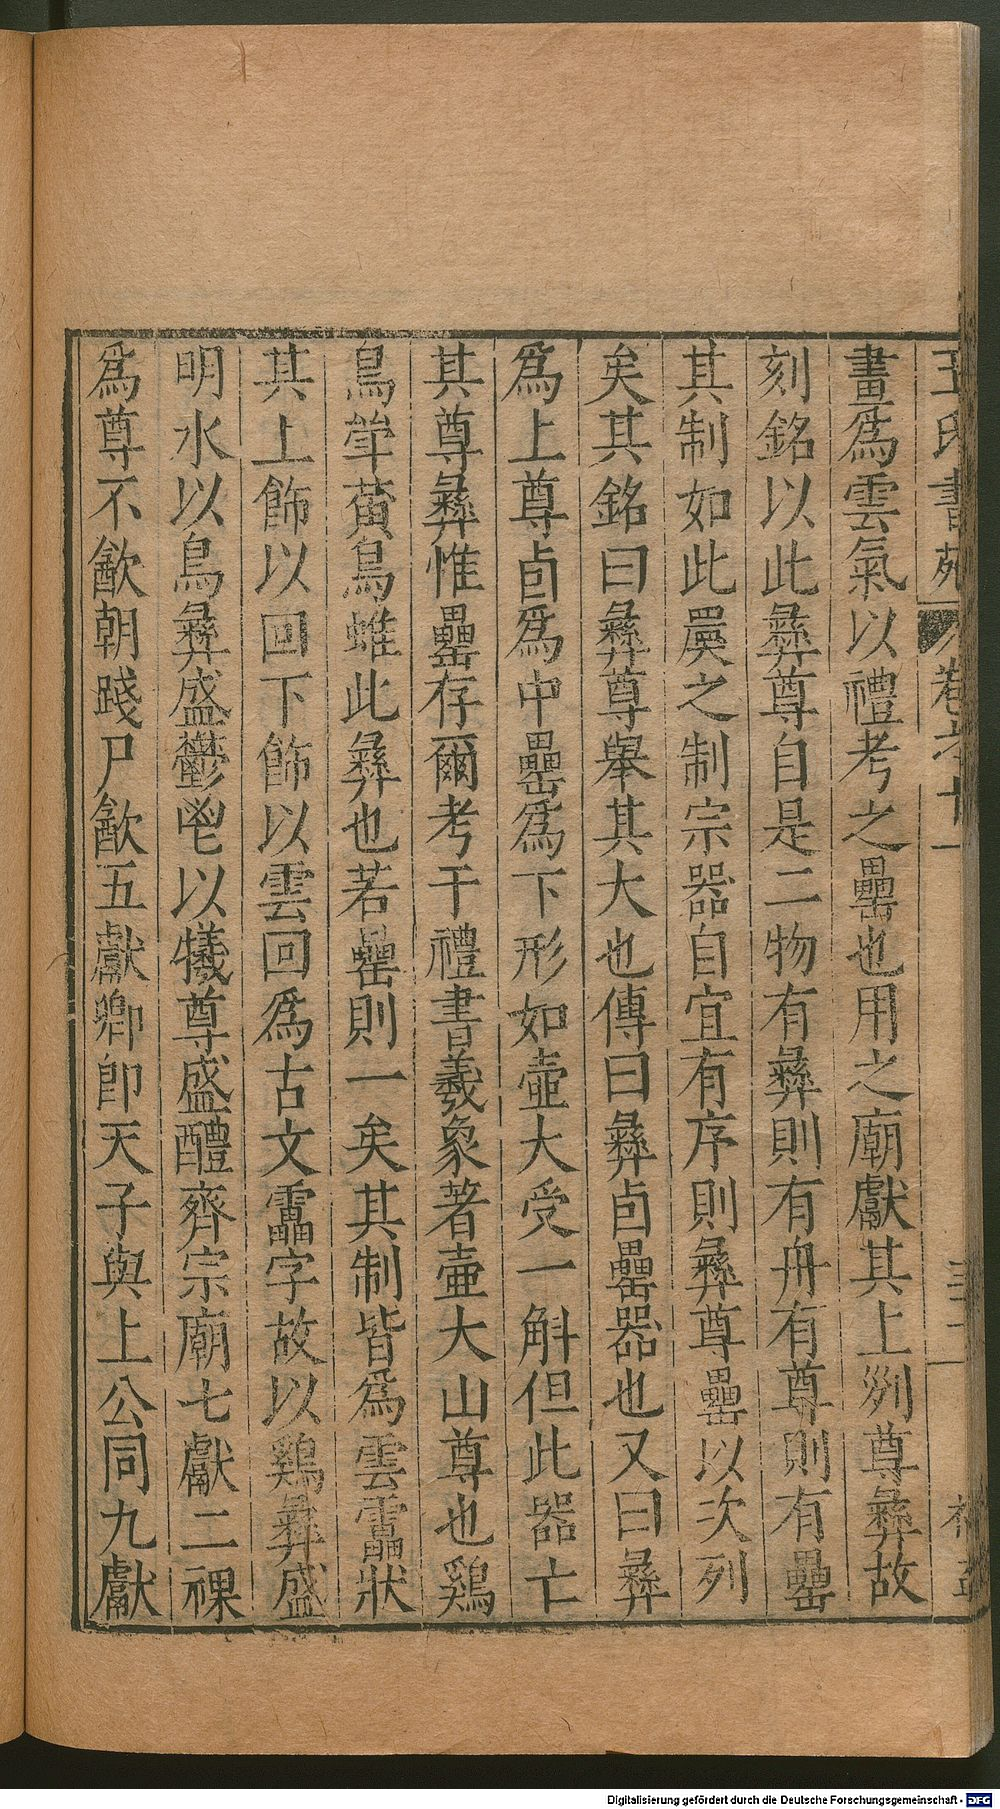 王氏書苑 卷之廿一
畫爲雲氣以禮考之罍也用之廟獻其上𠛱尊彝故
刻銘以此彝尊自是二物有彝則有舟有尊則有罍
其制如此㬰之制宗器自宜有序則彝尊罍以次列
矣其銘曰彝尊舉其大也傳曰彝卣罍器也又曰彝
爲上尊卣爲中罍爲下形如壺大受一斛但此器亡
其尊彝惟罍存爾考于禮書羲象著壷大山尊也鷄
鳥斝黃鳥蜼此彝也若罍則一矣其制皆爲雲靁狀
其上飾以回下飾以雲回爲古文靁字故以鷄彝盛
明水以鳥彝盛鬱鬯以犧尊盛醴齊宗廟七獻二祼
爲尊不歠朝踐尸歠五獻卿卽天子與上公同九獻
Digitalisierung gefördert durch die Deutsche Forschungsgemeinschaft - DFG